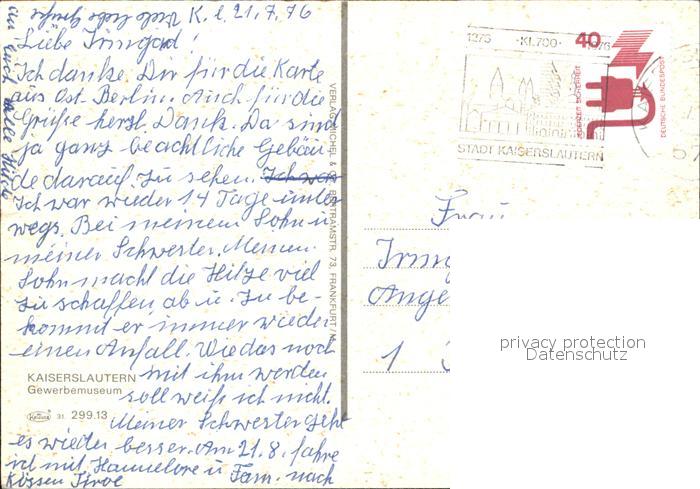 K. l. 21.7.76
Liebe Irmgard!
Ich danke Dir für die Karte
aus Ost-Berlin. Auch für die
Grüße herzl. Dank. Da sind
ja ganz beachtliche Gebäu
de darauf zu sehen. Ich war
Ich war wieder 14 Tage unter
wegs. Bei meinem Sohn u
meiner Schwester. Meinem
Sohn macht die Hitze viel
zu schaffen ab u. zu be-
kommt er immer wieder
einen Anfall. Wie das noch
mit ihm werden
soll weiß ich nicht.
Meiner Schwester geht
es wieder besser. Am 21.8. fahre
ich mit Hannelore u Fam. nach
Kössen Tirol
an Euch alle
KAISERSLAUTERN
Gewerbemuseum
31 299.13
VERLAG MICHEL & CO. BERTRAMSTR. 73, FRANKFURT/M.
1276 · KL 700 · 1976
STADT KAISERSLAUTERN
40
JEDERZEIT SICHERHEIT
DEUTSCHE BUNDESPOST
Frau
Irmg
Ange
1
privacy protection
Datenschutz